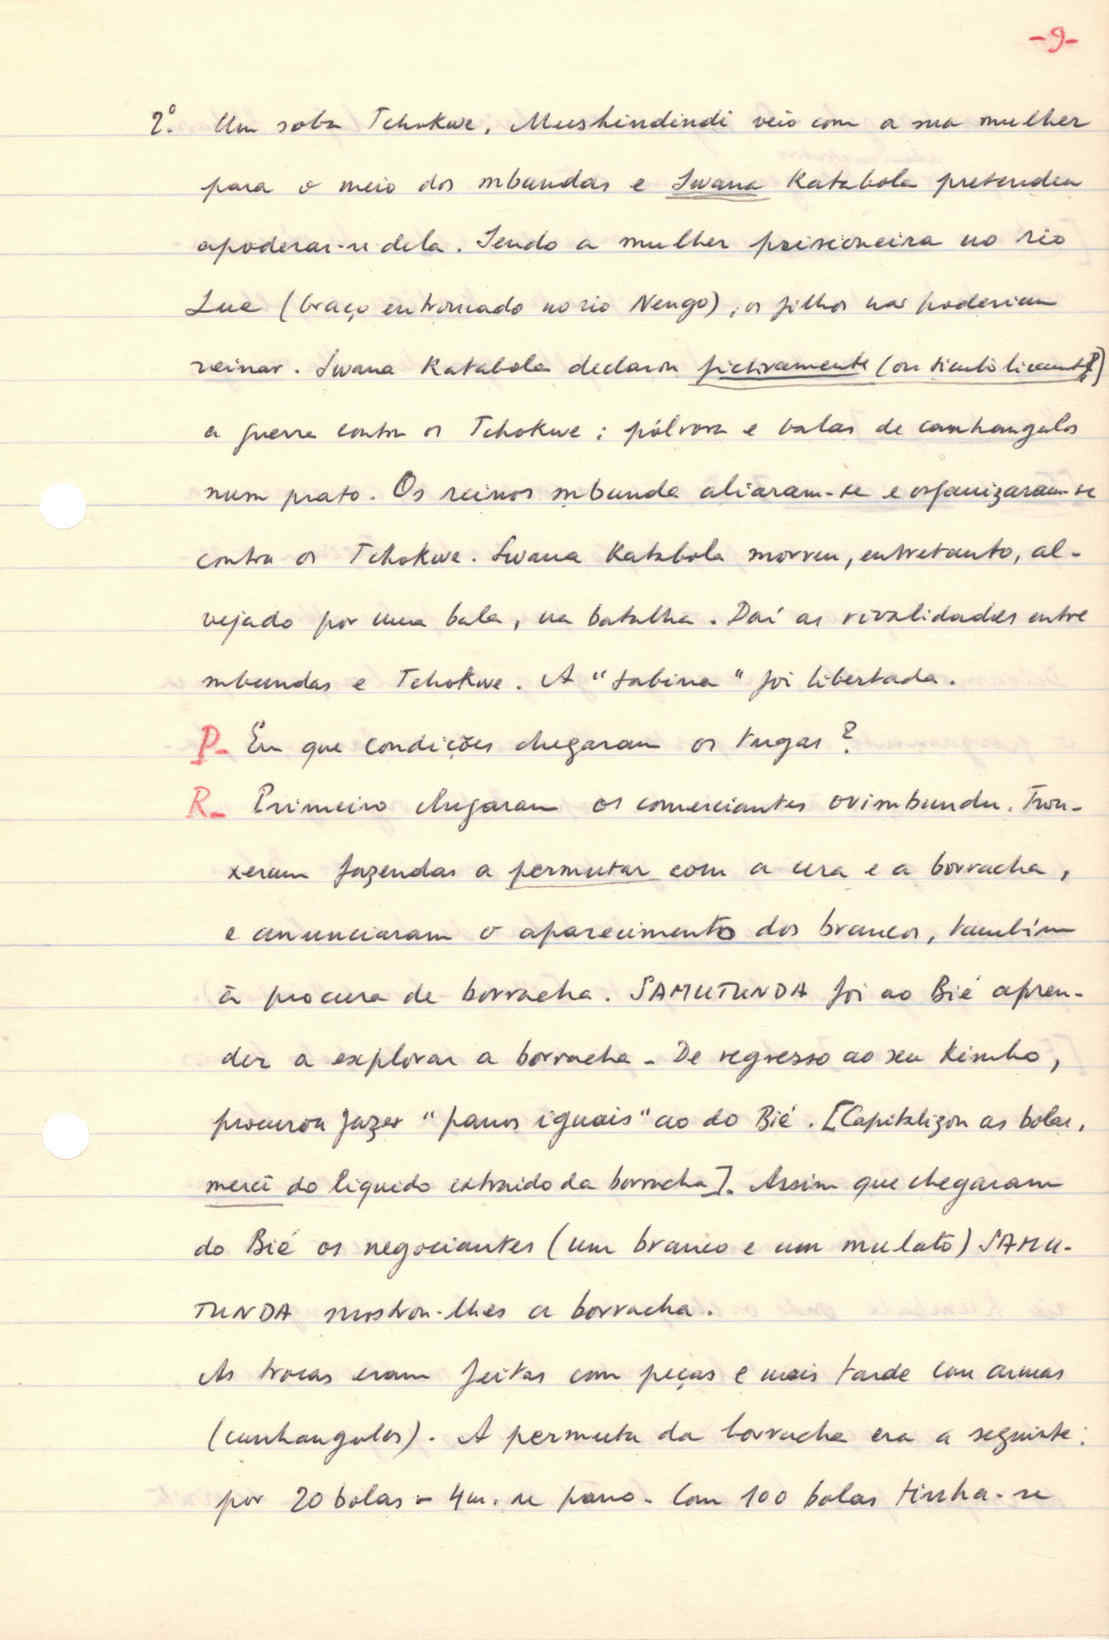 -9-
2º. Um soba Tchokwe, Mushindindi veio com a sua mulher
para o meio dos mbundas e Swana Katabola pretendeu
apoderar-se dela. Sendo a mulher prisioneira no rio
Lue (braço entroncado no rio Nengo), os filhos não poderiam
reinar. Swana Katabola declarou fictivamente (ou simbolicamente?)
a guerra contra os Tchokwe: pólvora e balas de canhangulos
num prato. Os reinos mbunda aliaram-se e organizaram-se
contra os Tchokwe. Swana Katabola morreu, entretanto, al-
vejado por uma bala, na batalha. Daí as rivalidades entre
mbundas e Tchokwe. A "sabina" foi libertada.
P- Em que condições chegaram os tugas?
R- Primeiro chegaram os comerciantes ovimbundu. Trou-
xeram fazendas a permutar com a cera e a borracha,
e anunciaram o aparecimento dos brancos, também
à procura de borracha. SAMUTUNDA foi ao Bié apren-
der a explorar a borracha - De regresso ao seu kimbo,
procurou fazer "panos iguais" ao do Bié. [Capitalizou as bolas,
mercê do líquido extraído da borracha]. Assim que chegaram
do Bié os negociantes (um branco e um mulato) SAMU-
TUNDA mostrou-lhes a borracha.
As trocas eram feitas com peças e mais tarde com armas
(canhangulos). A permuta da borracha era a seguinte:
por 20 bolas - 4m. de pano - Com 100 bolas tinha-se